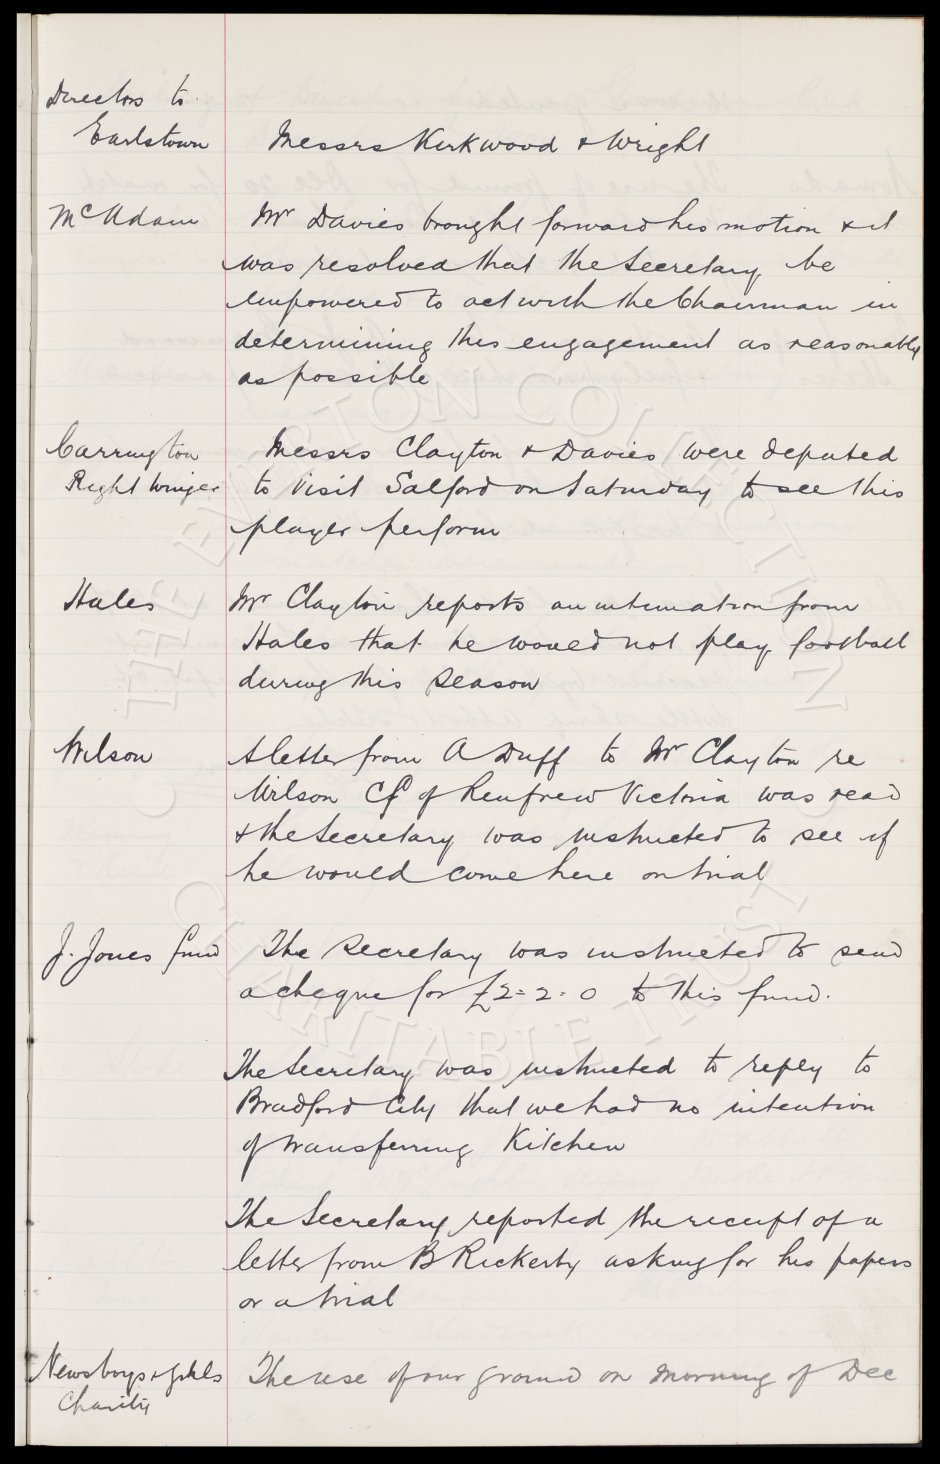 Directors to
Earlstown Messrs Kirkwood & Wright
McAdam Mr Davies brought forward his motion & it
was resolved that the Secretary be
empowered to act with the Chairman in
determining this engagement as reasonably
as possible
Carrington Messrs Clayton & Davies were deputed
Right Winger to visit Salford on Saturday to see this
player perform
Hales Mr Clayton reports an intimation from
Hales that he would not play football
during this season
Wilson A letter from A Duff to Mr Clayton re
Wilson CF of Renfrew Victoria was read
& the Secretary was instructed to see if
he would come here on trial
J. Jones fund The Secretary was instructed to send
a cheque for £2=2=0 to this fund.
The Secretary was instructed to reply to
Bradford City that we had no intention
of transferring Kitchen
The Secretary reported the receipt of a
letter from B Rickerby asking for his papers
or a trial
Newsboys & Girls The use of our ground on morning of Dec
Charity
THE EVERTON COLLECTION
CHARITABLE TRUST